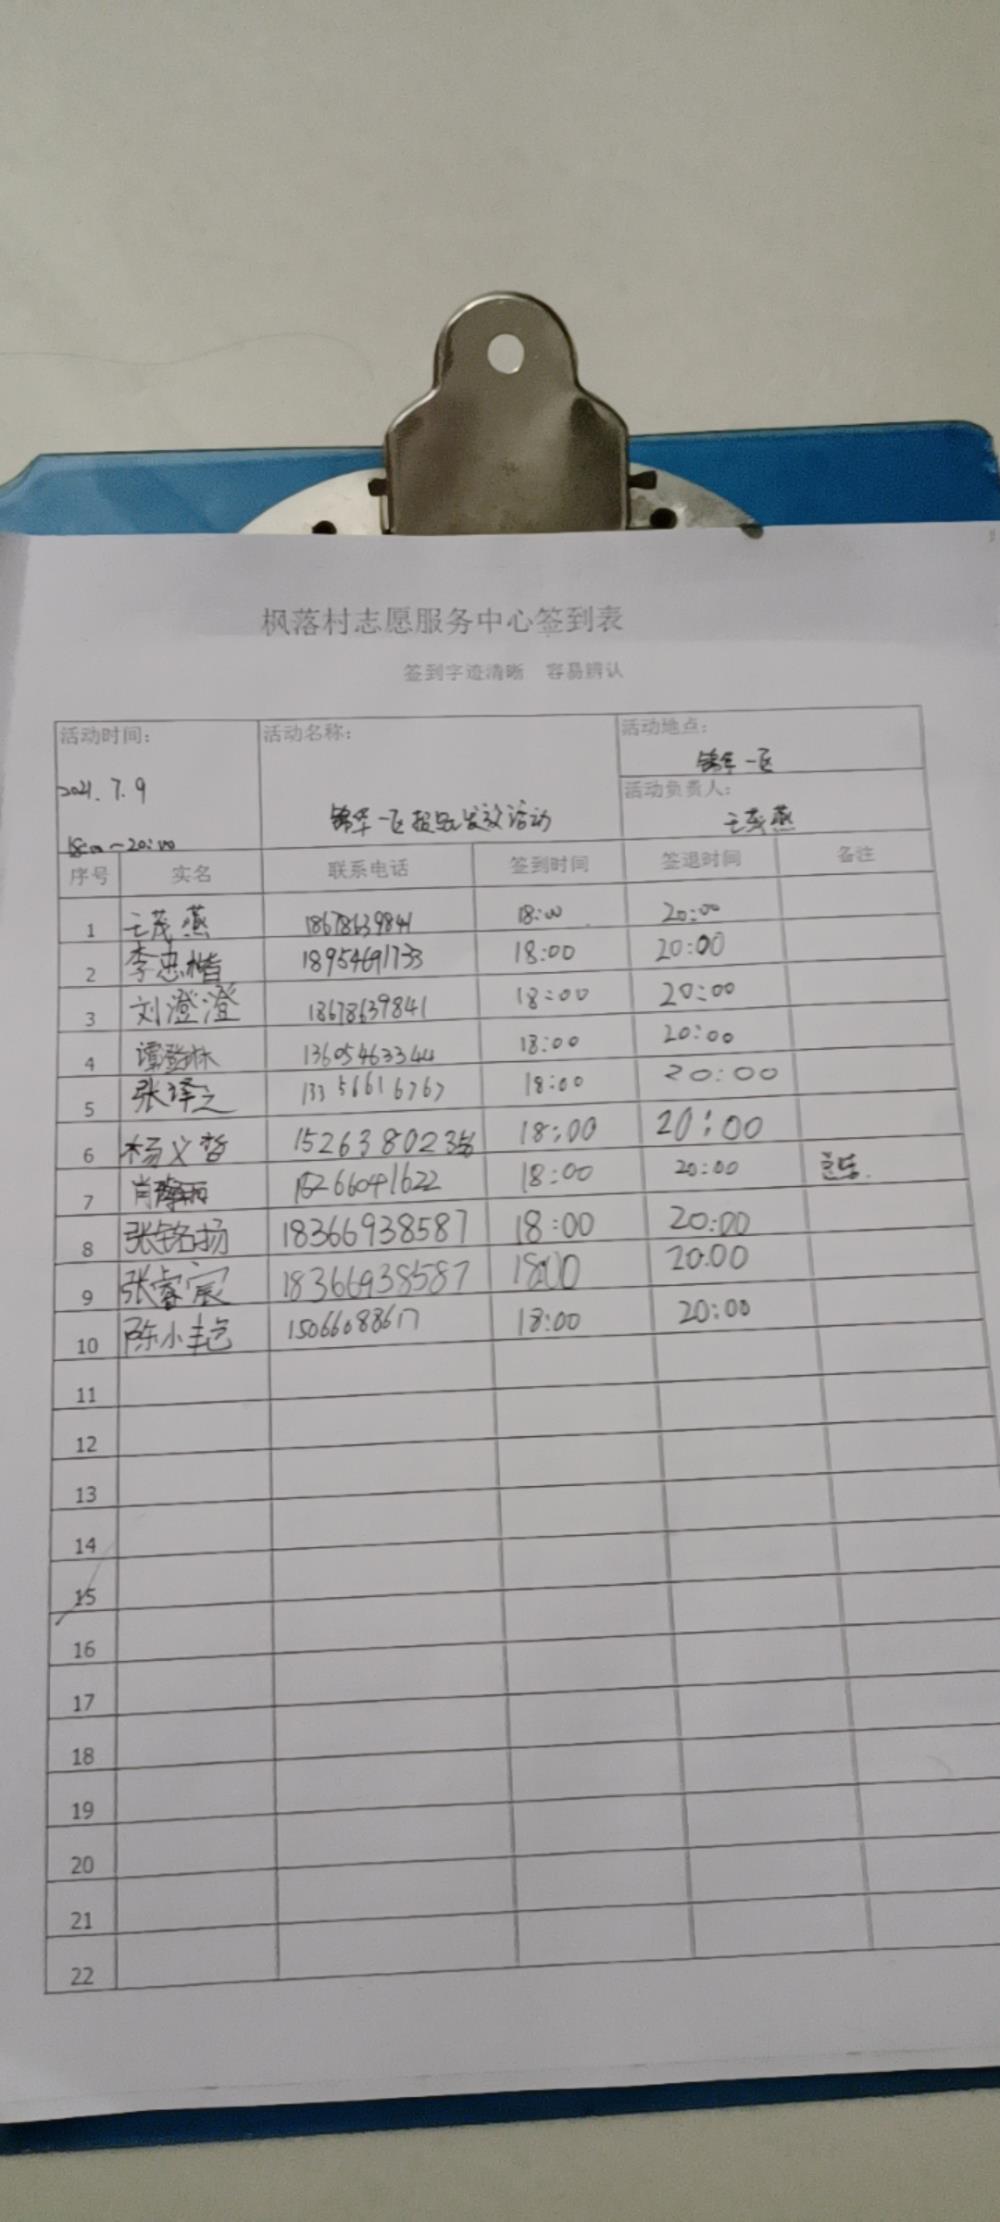 枫落村志愿服务中心签到表
签到字迹清晰 容易辨认
活动时间： 活动名称： 活动地点：
锦华一区
2021.7.9 活动负责人：
锦华一区报纸发放活动 王茂燕
18:00~20:00
序号 实名 联系电话 签到时间 签退时间 备注
1 王茂燕 18678639841 18:00 20:00
2 李忠楷 18954691733 18:00 20:00
3 刘澄澄 18678639841 18:00 20:00
4 谭登林 13605463344 18:00 20:00
5 张译之 13356616767 18:00 20:00
6 杨义哲 15263802356 18:00 20:00
7 肖 15266041622 18:00 20:00
8 张铭扬 18366938587 18:00 20:00
9 张睿宸 18366938587 18:00 20:00
10 陈小 15066088617 18:00 20:00
11
12
13
14
15
16
17
18
19
20
21
22